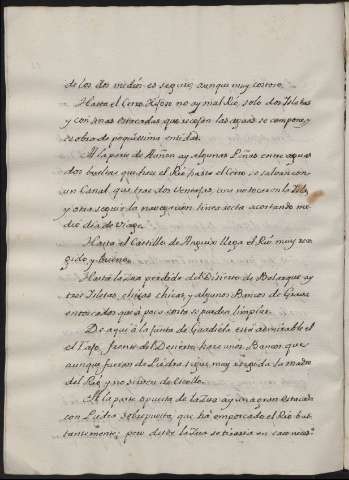 de los dos medios es seguro, aunque muy costoso.
Hasta el Cerro Xifon no ay mal Rio, solo dos Isletas
y con unas estacadas, que recojan las aguas se compone, y
es obra de poquissima entidad.
A la parte de Auñon ay algunas Peñas entre aguas
dos bueltas que hace el Rio hasta el cerro, se salvan con
un Canal, que trae dos ventajas, una no tocar en la Isla,
y otra seguir la navegacion linea recta acortando me-
dio dia de Viage.
Hasta el Castillo de Anguix llega el Rio muy reco-
gido y bueno.
Hasta la Zua perdida del Disierto de Bolarque ay
tres Isletas, chicas, y algunos Bancos de Grava
entorcados que à poca costa se pueden limpiar.
De aqui à la junta de Guadiela està admirable el
el Tajo, frente del Desierto, hace unos Bancos que
aunque fueran de Piedra sigue muy cogida la madre
del Rio, y no sirven de
A la parte opuesta de la Zua ay una gran estacada
con Piedra sobrepuesta, que ha emporcado el Rio bas-
tantemente; pero desde la Zua se tiraria en